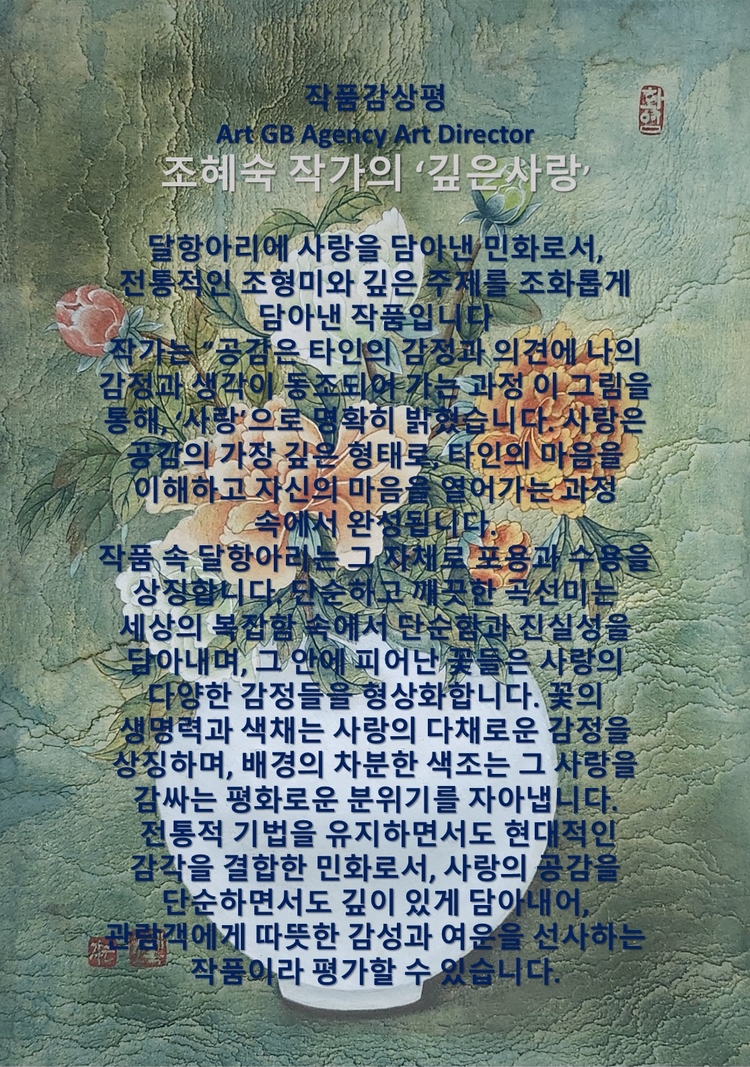 작품감상평
Art GB Agency Art Director
조혜숙 작가의 ‘깊은사랑’
달항아리에 사랑을 담아낸 민화로서,
전통적인 조형미와 깊은 주제를 조화롭게
담아낸 작품입니다
작가는 “공감은 타인의 감정과 의견에 나의
감정과 생각이 동조되어 가는 과정 이 그림을
통해, ‘사랑’으로 명확히 밝혔습니다. 사랑은
공감의 가장 깊은 형태로, 타인의 마음을
이해하고 자신의 마음을 열어가는 과정
속에서 완성됩니다.
작품 속 달항아리는 그 자체로 포용과 수용을
상징합니다. 단순하고 깨끗한 곡선미는
세상의 복잡함 속에서 단순함과 진실성을
담아내며, 그 안에 피어난 꽃들은 사랑의
다양한 감정들을 형상화합니다. 꽃의
생명력과 색채는 사랑의 다채로운 감정을
상징하며, 배경의 차분한 색조는 그 사랑을
감싸는 평화로운 분위기를 자아냅니다.
전통적 기법을 유지하면서도 현대적인
감각을 결합한 민화로서, 사랑의 공감을
단순하면서도 깊이 있게 담아내어,
관람객에게 따뜻한 감성과 여운을 선사하는
작품이라 평가할 수 있습니다.